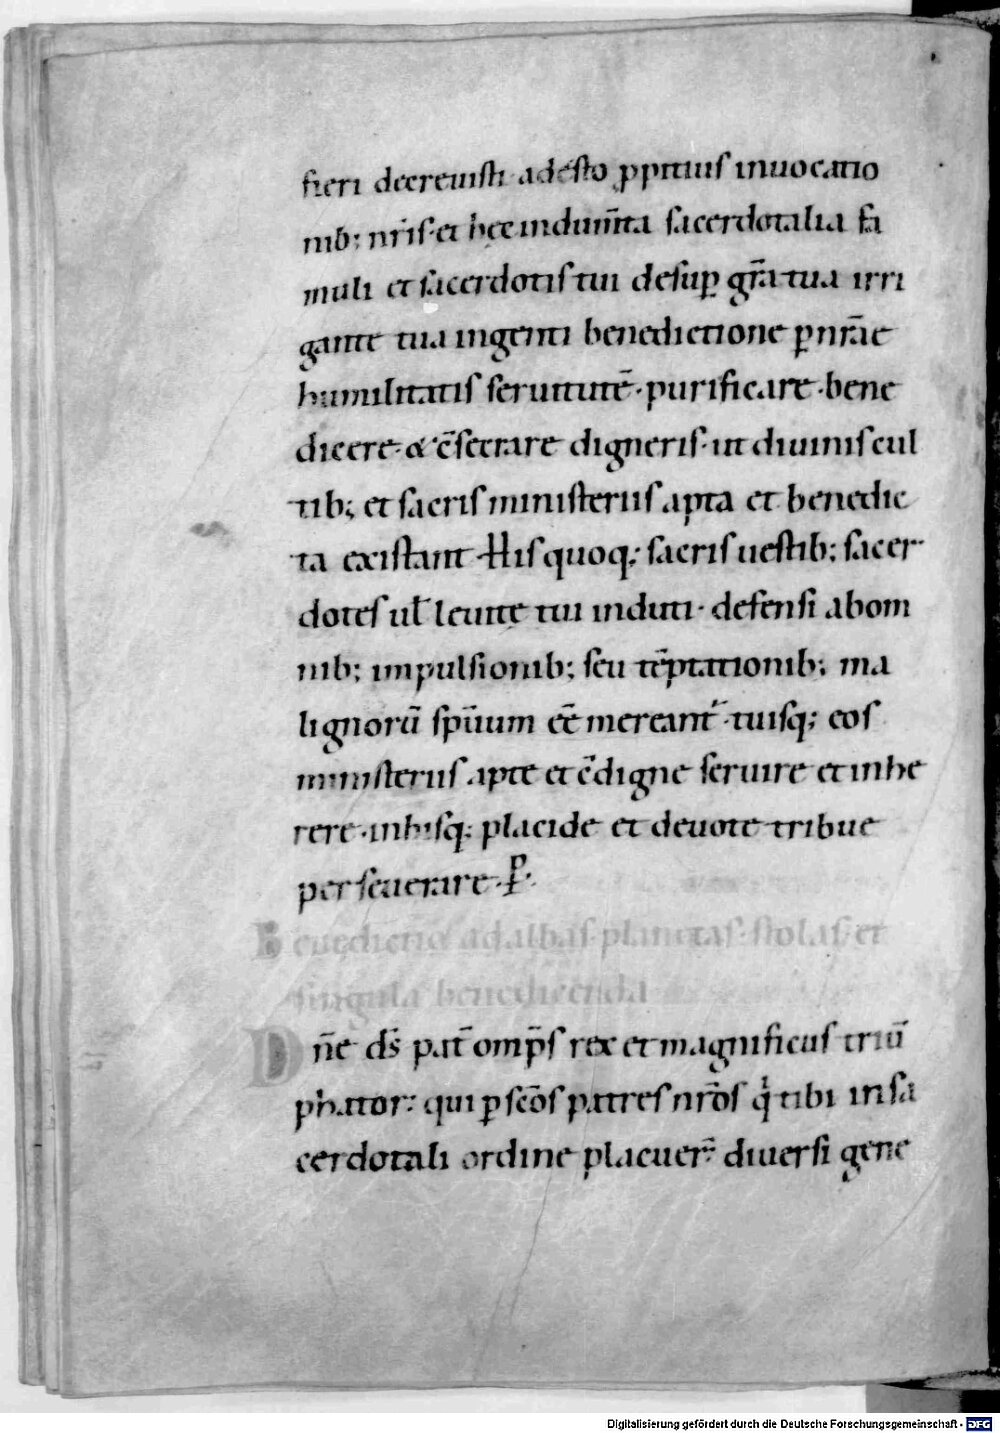 fieri decreuisti adesto ꝓpitius inuocatio
nib; nr̄is· et hęc indum̄ta sacerdotalia fa
muli et sacerdotis tui desuꝑ gr̄a tua irri
gante tua ingenti benedictione ꝑ nr̄ae
humilitatis seruitutē· purificare· bene
dicere· & c̄secrare digneris· ut diuinis cul
tib; et sacris ministeriis apta et benedic
ta existant· His quoq; sacris uestib; sacer
dotes ul̄ leuitę tui induti· defensi ab om
nib; impulsionib; seu tēptationib; ma
lignorū sp̄uum eē mereant᷑· tuisq; eos
ministeriis apte et c̄digne seruire et inhe
rere· inhisq; placide et deuote tribue
perseuerare· P̄·
Benedictio ad albas· planetas· stolas· et
singula benedicenda
Dn̄e ds̄ pat̄ omp̄s rex et magnificus triū
phator: qui ꝑ sc̄os patres nr̄os qͥ tibi in sa
cerdotali ordine placuer̄· diuersi gene
Digitalisierung gefördert durch die Deutsche Forschungsgemeinschaft - DFG